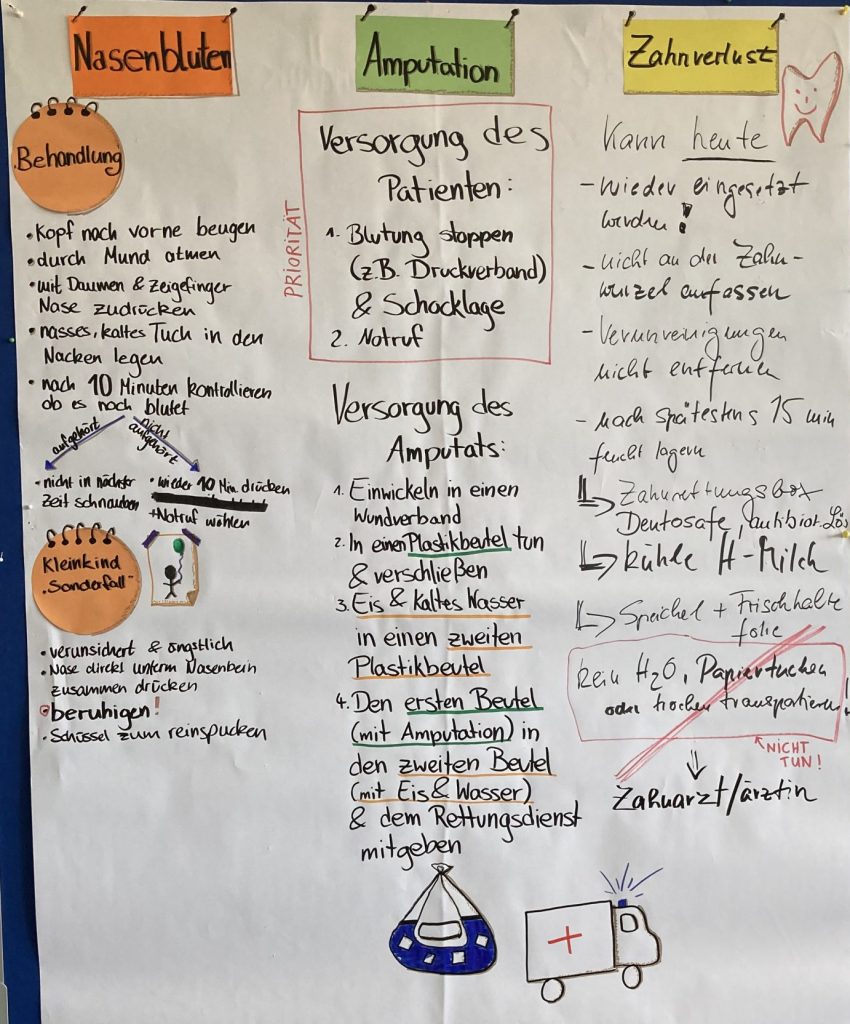 Nasenbluten
Behandlung
• Kopf nach vorne beugen
• durch Mund atmen
• mit Daumen & Zeigefinger
Nase zudrücken
• nasses, kaltes Tuch in den
Nacken legen
• nach 10 Minuten kontrollieren
ob es noch blutet
aufgehört
nicht
aufgehört
- nicht in nächster
Zeit schnauben
• wieder 10 Min. drücken
+ Notruf wählen
Kleinkind
"Sonderfall"
• verunsichert & ängstlich
• Nase direkt unterm Nasenbein
zusammen drücken
• beruhigen!
• Schüssel zum reinspucken
Amputation
PRIORITÄT
Versorgung des
Patienten:
1. Blutung stoppen
(z.B. Druckverband)
& Schocklage
2. Notruf
Versorgung des
Amputats:
1. Einwickeln in einen
Wundverband
2. In einen Plastikbeutel tun
& verschließen
3. Eis & Kaltes Wasser
in einen zweiten
Plastikbeutel
4. Den ersten Beutel
(mit Amputation) in
den zweiten Beutel
(mit Eis & Wasser)
& dem Rettungsdienst
mitgeben
Zahnverlust
Kann heute
- wieder eingesetzt
werden!
- nicht an der Zahn-
wurzel anfassen
- Verunreinigungen
nicht entfernen
- nach spätestens 15 min
feucht lagern
Zahnrettungsbox
Dentosafe, antibiot. Lös
kühle H-Milch
Speichel + Frischhalte
folie
kein H2O, Papiertücher
oder trocken transportieren!
NICHT
TUN!
Zahnarzt/ärztin